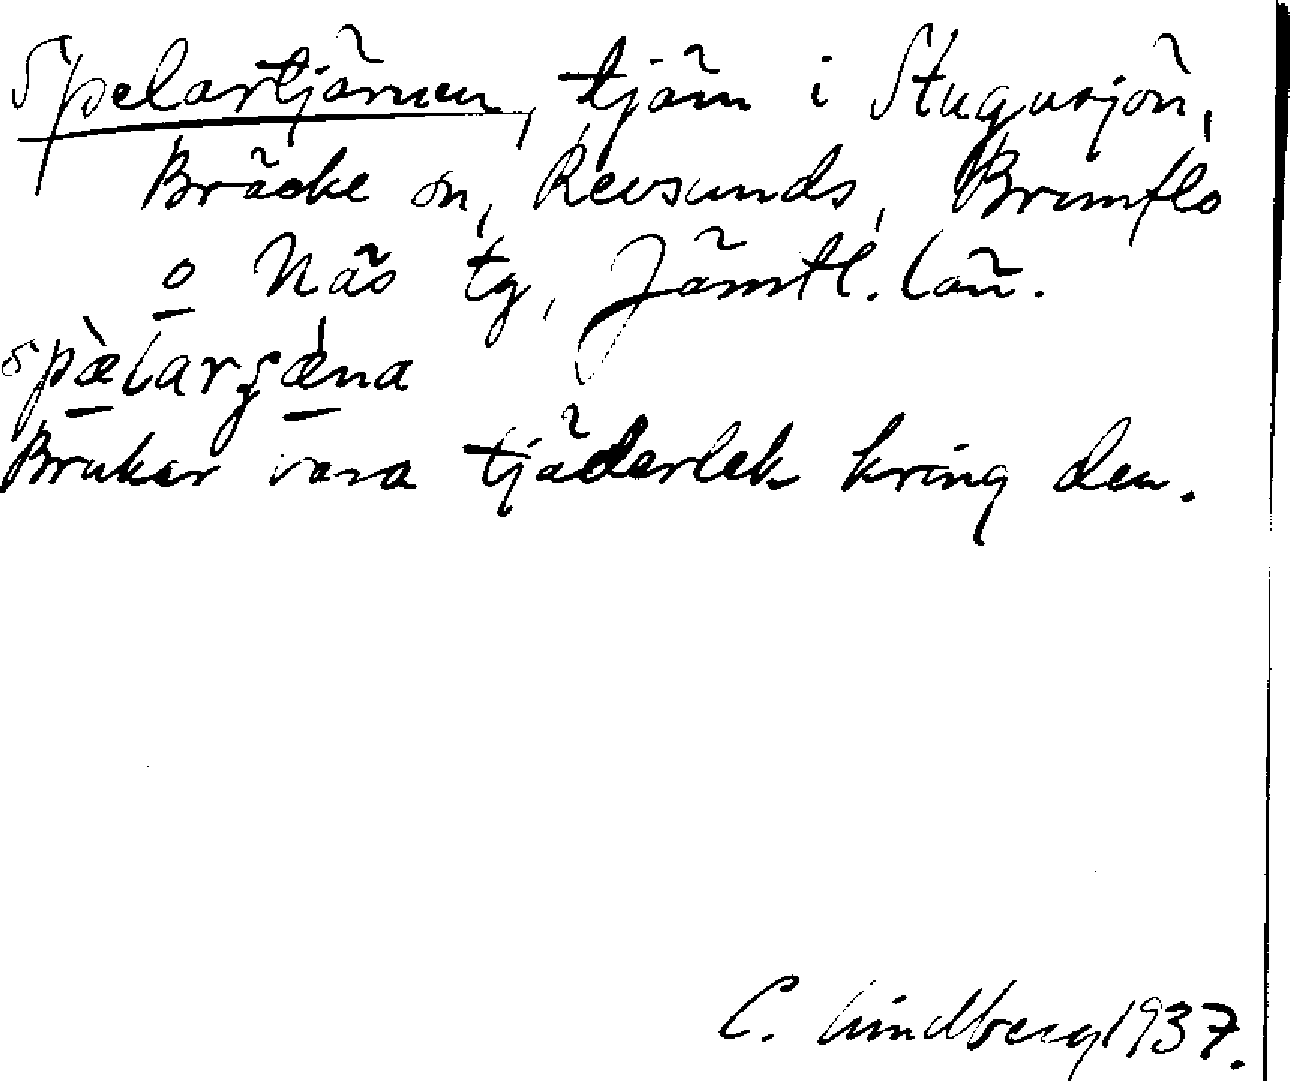 Spelartjärnen, tjärn i Stugusjön,
Bräcke sn, Revsunds, Brunflo
o Näs tg, Jämtl. län.
Brukar vara tjäderlek kring den.
C. Lindberg 1937.